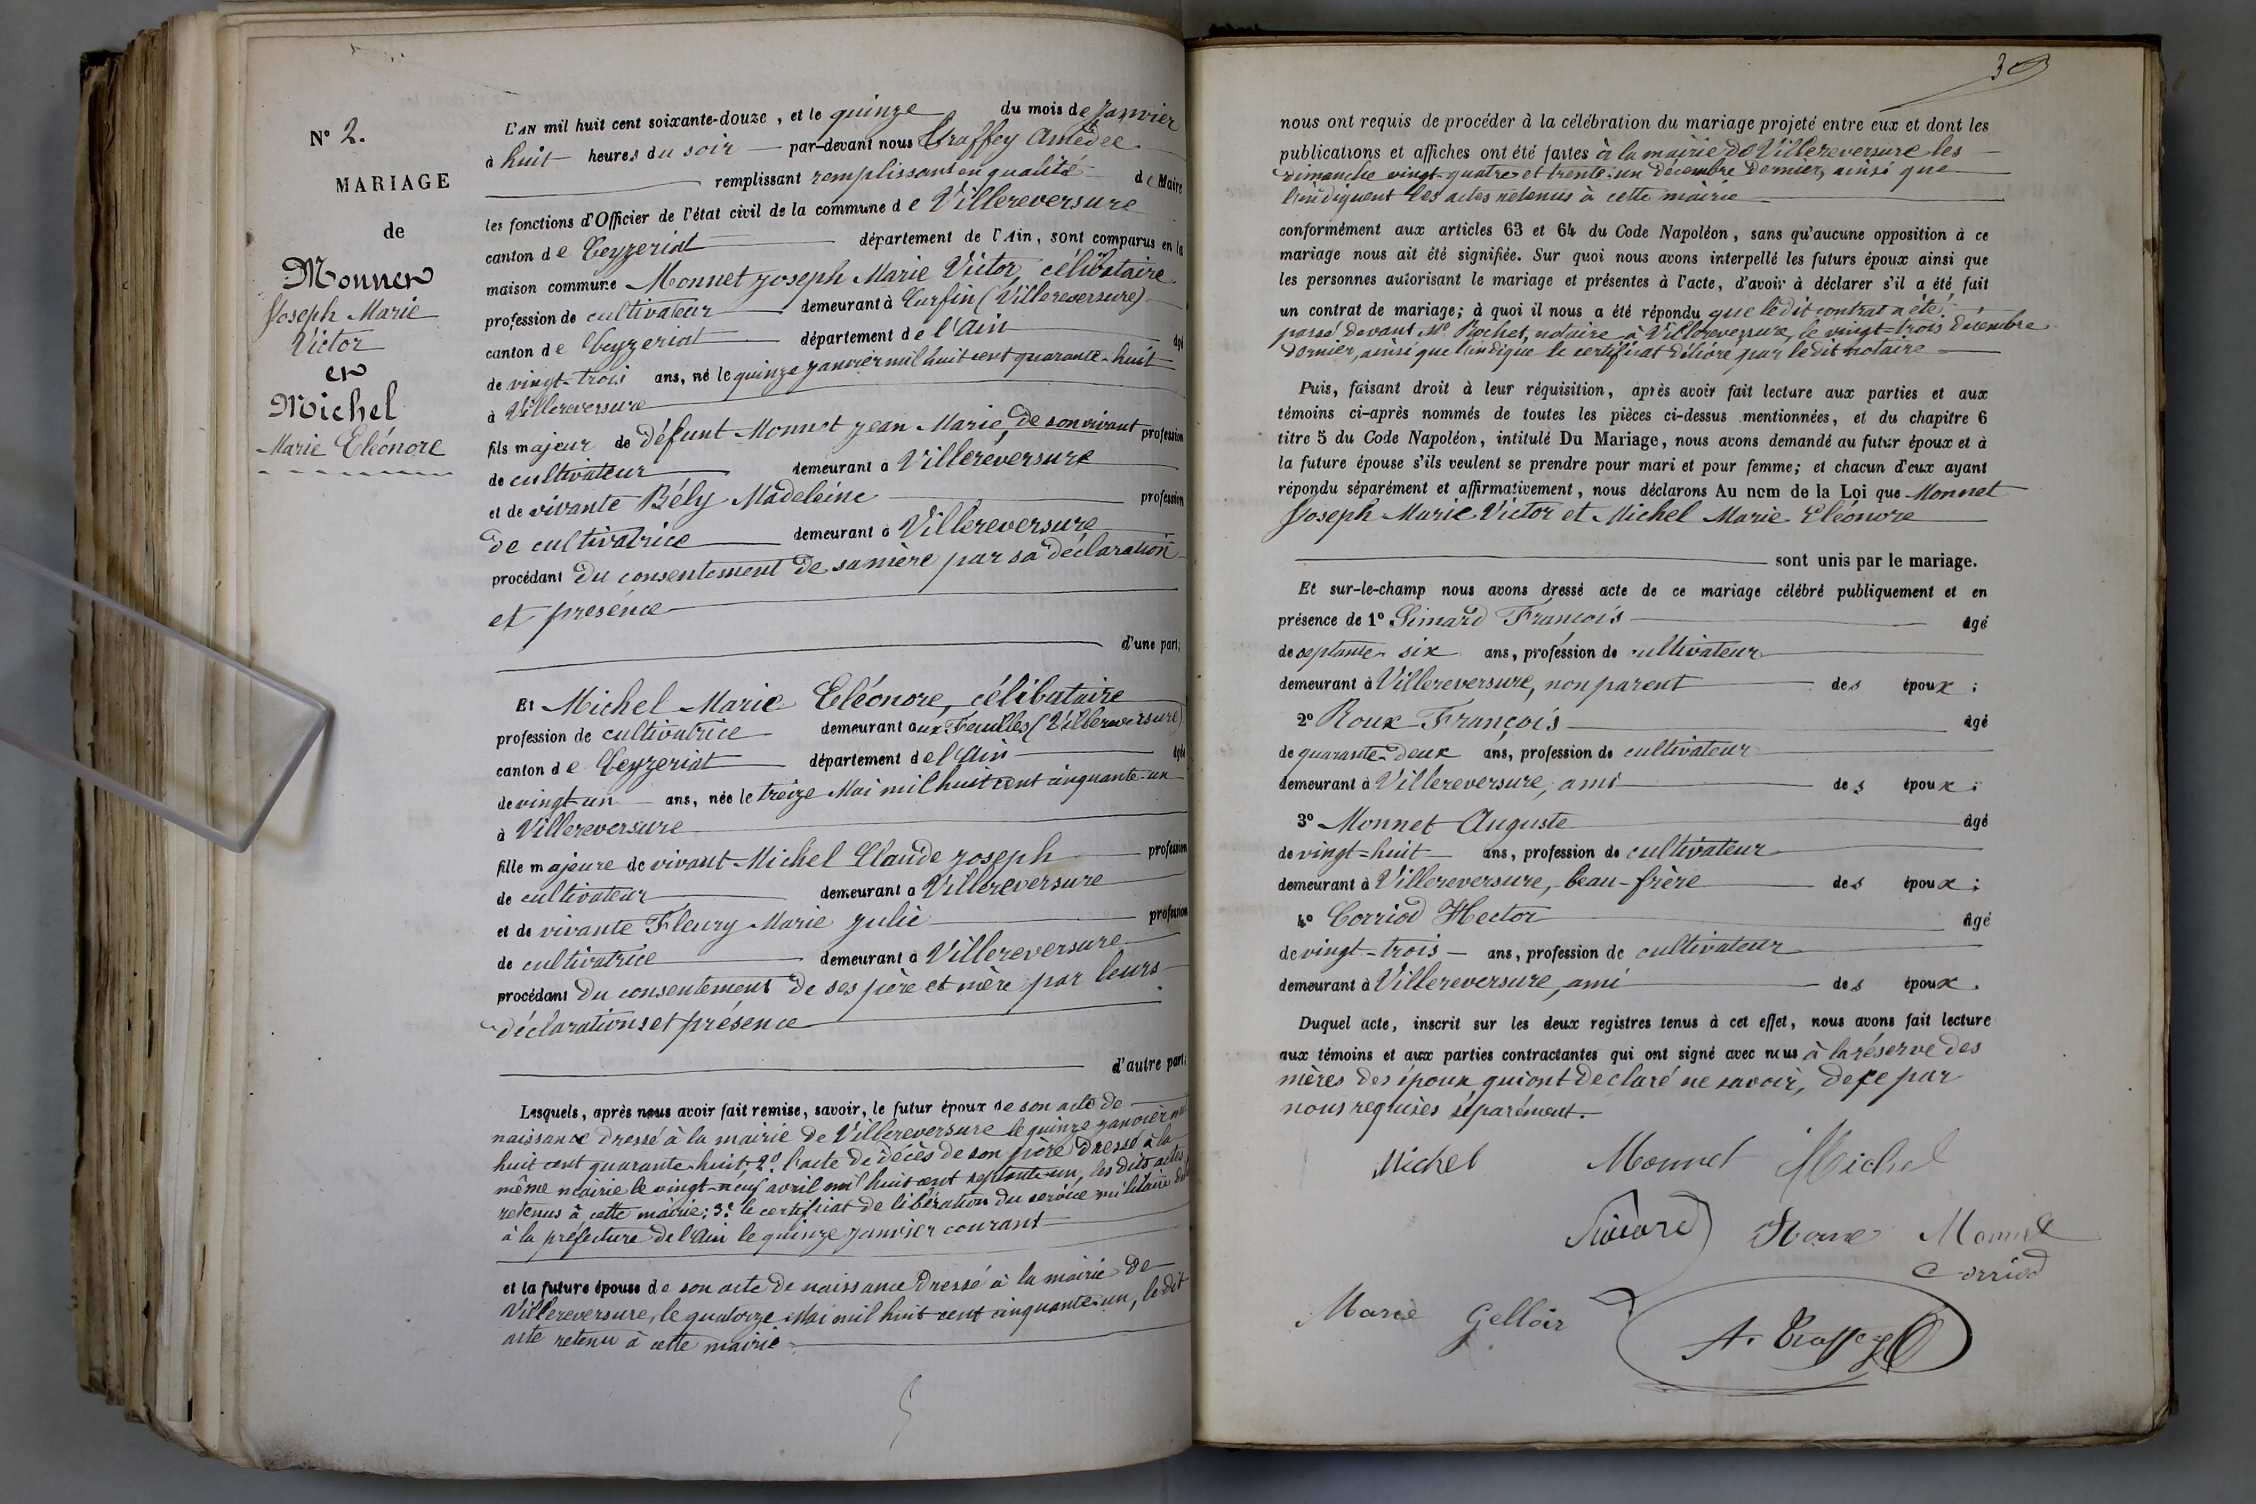 N° 2.
MARIAGE
de
Monnet
Joseph Marie
Victor
et
Michel
Marie Eléonore
L'AN mil huit cent soixante-douze, et le quinze du mois de Janvier
à huit heures du soir par-devant nous Traffey Amédée
remplissant remplissant en qualité de Maire
les fonctions d'Officier de l'état civil de la commune de Villereversure
canton de Ceyzeriat département de l'Ain, sont comparus en la
maison commune Monnet Joseph Marie Victor, célibataire
profession de cultivateur demeurant à Turfin (Villereversure)
canton de Ceyzeriat département de l'Ain âgé
de vingt-trois ans, né le quinze janvier mil huit cent quarante-huit
à Villereversure
fils majeur de défunt Monnet Jean Marie de son vivant profession
de cultivateur demeurant à Villereversure
et de vivante Bély Madeleine profession
de cultivatrice demeurant à Villereversure
procédant du consentement de sa mère par sa déclaration
et présence
d'une part;
Et Michel Marie Eléonore, célibataire
profession de cultivatrice demeurant aux Feuilles (Villereversure)
canton de Ceyzeriat département de l'Ain âgée
de vingt-un ans, née le treize Mai mil huit cent cinquante-un
à Villereversure
fille majeure de vivant Michel Claude Joseph profession
de cultivateur demeurant à Villereversure
et de vivante Fleury Marie Julie profession
de cultivatrice demeurant à Villereversure
procédant du consentement de ses père et mère par leurs
déclarations et présence
d'autre part;
Lesquels, après nous avoir fait remise, savoir, le futur époux de son acte de
naissance dressé à la mairie de Villereversure le quinze janvier mil
huit cent quarante-huit; 2° l'acte de décès de son père dressé à la
même mairie le vingt-neuf avril mil huit cent septante-un, les dits actes
retenus à cette mairie; 3° le certificat de libération du service militaire
à la préfecture de l'Ain le quinze janvier courant
et la future épouse de son acte de naissance dressé à la mairie de
Villereversure, le quatorze Mai mil huit cent cinquante-un, le dit
acte retenu à cette mairie
39
nous ont requis de procéder à la célébration du mariage projeté entre eux et dont les
publications et affiches ont été faites à la mairie de Villereversure les
dimanche vingt-quatre et trente-un décembre dernier, ainsi que
l'indiquent les actes retenus à cette mairie
conformément aux articles 63 et 64 du Code Napoléon, sans qu'aucune opposition à ce
mariage nous ait été signifiée. Sur quoi nous avons interpellé les futurs époux ainsi que
les personnes autorisant le mariage et présentes à l'acte, d'avoir à déclarer s'il a été fait
un contrat de mariage; à quoi il nous a été répondu que le dit contrat a été
passé devant Me Rochet, notaire à Villereversure, le vingt-trois décembre
dernier, ainsi que l'indique le certificat délivré par le dit notaire
Puis, faisant droit à leur réquisition, après avoir fait lecture aux parties et aux
témoins ci-après nommés de toutes les pièces ci-dessus mentionnées, et du chapitre 6
titre 5 du Code Napoléon, intitulé Du Mariage, nous avons demandé au futur époux et à
la future épouse s'ils veulent se prendre pour mari et pour femme; et chacun d'eux ayant
répondu séparément et affirmativement, nous déclarons Au nom de la Loi que Monnet
Joseph Marie Victor et Michel Marie Eléonore
sont unis par le mariage.
Et sur-le-champ nous avons dressé acte de ce mariage célébré publiquement et en
présence de 1° Simard François âgé
de septante-six ans, profession de cultivateur
demeurant à Villereversure, non parent des époux;
2° Roux François âgé
de quarante-deux ans, profession de cultivateur
demeurant à Villereversure, ami des époux;
3° Monnet Auguste âgé
de vingt-huit ans, profession de cultivateur
demeurant à Villereversure, beau-frère des époux;
4° Corriod Hector âgé
de vingt-trois ans, profession de cultivateur
demeurant à Villereversure, ami des époux.
Duquel acte, inscrit sur les deux registres tenus à cet effet, nous avons fait lecture
aux témoins et aux parties contractantes qui ont signé avec nous à la réserve des
mères des époux qui ont déclaré ne savoir, de ce par
nous requises séparément.
Michel Monnet Michel
Monnet
Corriod
Marie Gelloir
A. Traffey